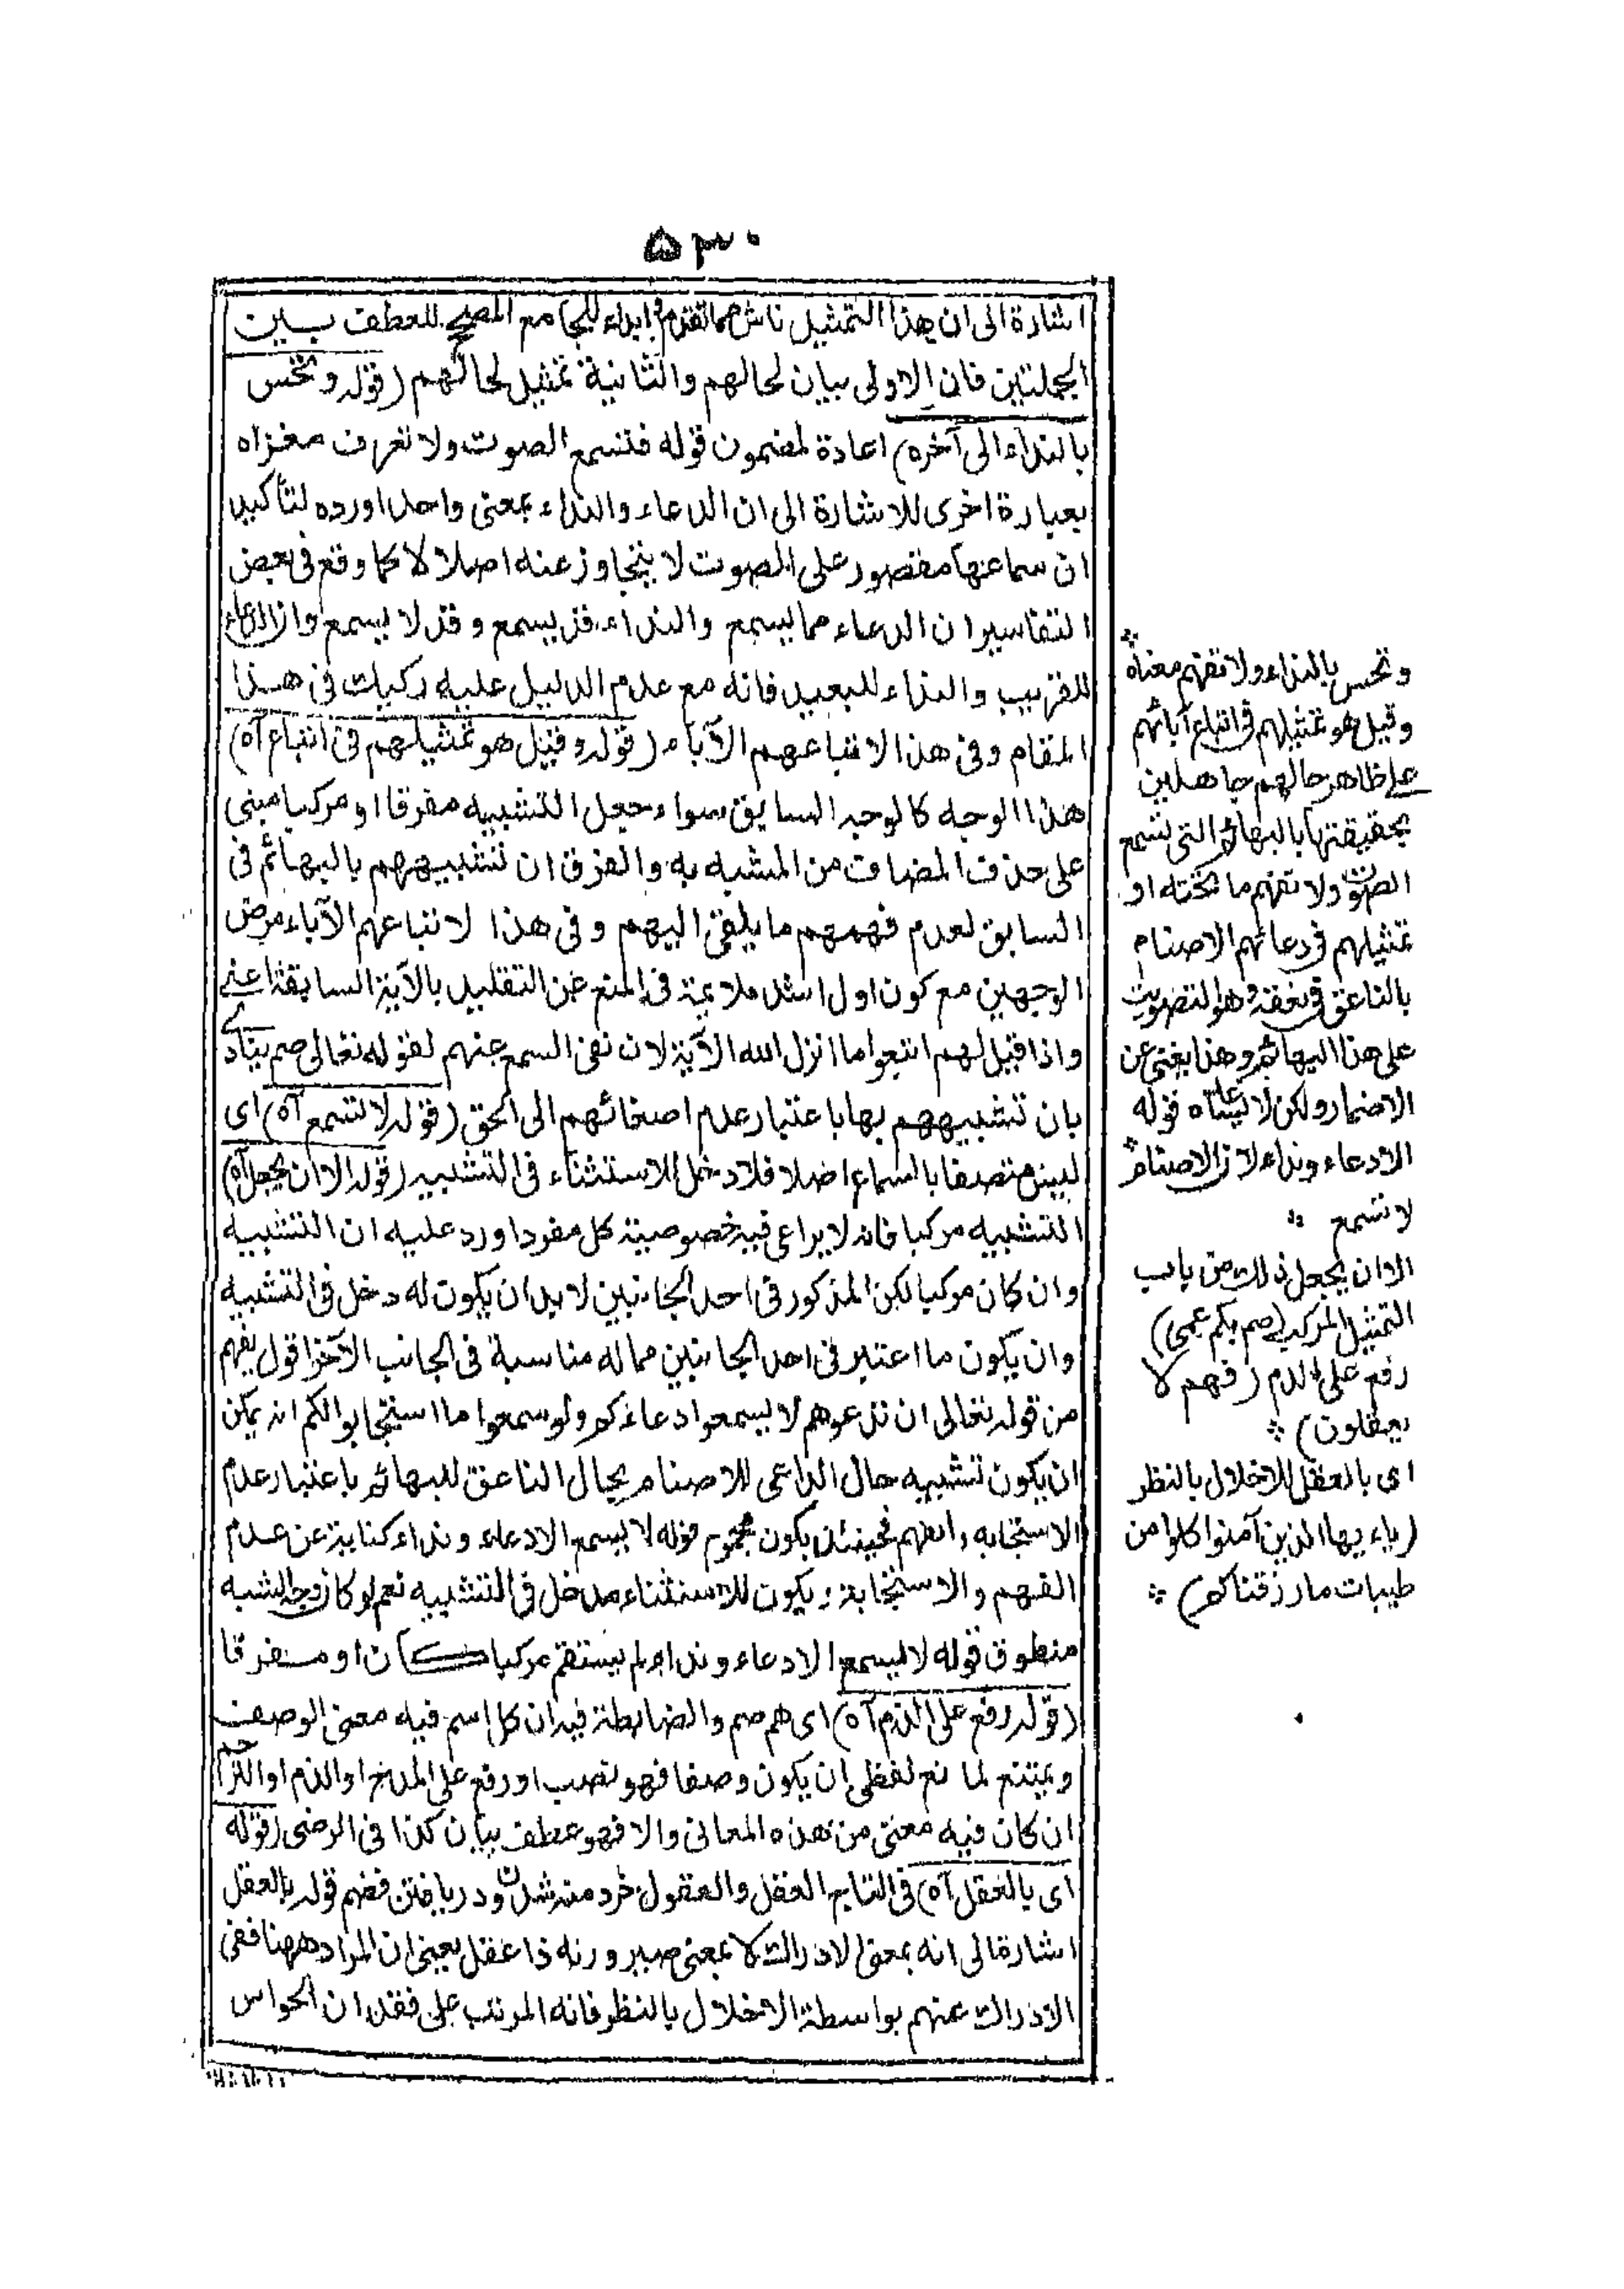 ۵۳۰
اشارة الى ان هذا التمثيل ناش مما تقدم وابداء للجامع المصحح للعطف بين
الجملتين فان الاولى بيان لحالهم والثانية تمثيل لحالهم (قوله وتحس
بالنداء الى آخره) اعادة لمضمون قوله فتسمع الصوت ولا تعرف مغزاه
بعبارة اخرى للاشارة الى ان الدعاء والنداء بمعنى واحد اورده لتأكيد
ان سماعها مقصور على الصوت لا يتجاوز عنه اصلا لا كما وقع فى بعض
التفاسير ان الدعاء مما يسمع والنداء قد يسمع وقد لا يسمع وان الدعاء
للقريب والنداء للبعيد فانه مع عدم الدليل عليه ركيك فى هذا
المقام وفى هذا لاتباعهم الآباء (قوله وقيل هو تمثيلهم فى اتباع آه)
هذا الوجه كالوجه السابق سواء جعل التشبيه مفرقا او مركبا مبنى
على حذف المضاف من المشبه به والفرق ان تشبيههم بالبهائم فى
السابق لعدم فهمهم ما يلقى اليهم وفى هذا لاتباعهم الآباء مرض
الوجهين مع كون اول اشد ملايمة فى المنع عن التقليد بالآية السابقة اعنى
واذا قيل لهم اتبعوا ما انزل الله الآية لان نفى السمع عنهم لقوله تعالى صم ينادى
بان تشبيههم بها باعتبار عدم اصغائهم الى الحق (قوله لا تسمع آه) اى
ليس متصفا بالسماع اصلا فلا دخل للاستثناء فى التشبيه (قوله الا ان يجعل آه)
التشبيه مركبا فانه لا يراعى فيه خصوصية كل مفرد اورد عليه ان التشبيه
وان كان مركبا لكن المذكور فى احد الجانبين لا بد ان يكون له دخل فى التشبيه
وان يكون ما اعتبر فى احد الجانبين مما له مناسبة فى الجانب الآخر اقول يفهم
من قوله تعالى ان تدعوهم لا يسمعوا دعاءكم ولو سمعوا ما استجابوا لكم انه يمكن
ان يكون تشبيه حال الداعى للاصنام بحال الناعق للبهائم باعتبار عدم
الاستجابه والفهم فحينئذ يكون مجموع قوله لا يسمع الا دعاء ونداء كناية عن عدم
الفهم والاستجابة ويكون للاستثناء مدخل فى التشبيه نعم لو كان وجه الشبه
منطوق قوله لا يسمع الا دعاء ونداء لم يستقم مركبا كان او مفرقا
(قوله رفع على الذم آه) اى هم صم والضابطة فيه ان كل اسم فيه معنى الوصف
ويمتنع لمانع لفظى ان يكون وصفا فهو نصب او رفع على المدح او الذم او الترحم
ان كان فيه معنى من هذه المعانى والا فهو عطف بيان كذا فى الرضى (قوله
اى بالعقل آه) فى التاج العقل والعقول خرد مند شدن ودريافتن فضم قوله بالعقل
اشارة الى انه بمعنى الادراك لا بمعنى صيرورته ذا عقل يعنى ان المراد ههنا نفى
الادراك عنهم بواسطة الاخلال بالنظر فانه المرتب على فقدان الحواس
وتحس بالنداء ولا تفهم معناه
وقيل هو تمثيلهم فى اتباع آبائهم
على ظاهر حالهم جاهلين
بحقيقتها بالبهائم التى تسمع
الصوت ولا تفهم ما تحته او
تمثيلهم فى دعائهم الاصنام
بالناعق فى نعقه وهو التصويت
على هذا البهائم وهذا يغنى عن
الاضمار ولكن لا يساعده قوله
الا دعاء ونداء لان الاصنام
لا تسمع
الا ان يجعل ذلك من باب
التمثيل المركب (صم بكم عمى)
رفع على الذم (فهم لا
يعقلون)
اى بالعقل للاخلال بالنظر
(ياء يها الذين آمنوا كلوا من
طيبات ما رزقناكم)